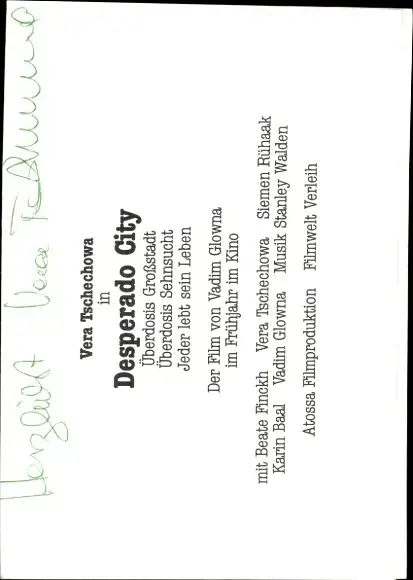 Herzlichst Vera Tschechowa
Vera Tschechowa
in
Desperado City
Überdosis Großstadt
Überdosis Sehnsucht
Jeder lebt sein Leben
Der Film von Vadim Glowna
im Frühjahr im Kino
mit Beate Finckh Vera Tschechowa Siemen Rühaak
Karin Baal Vadim Glowna Musik Stanley Walden
Atossa Filmproduktion Filmwelt Verleih